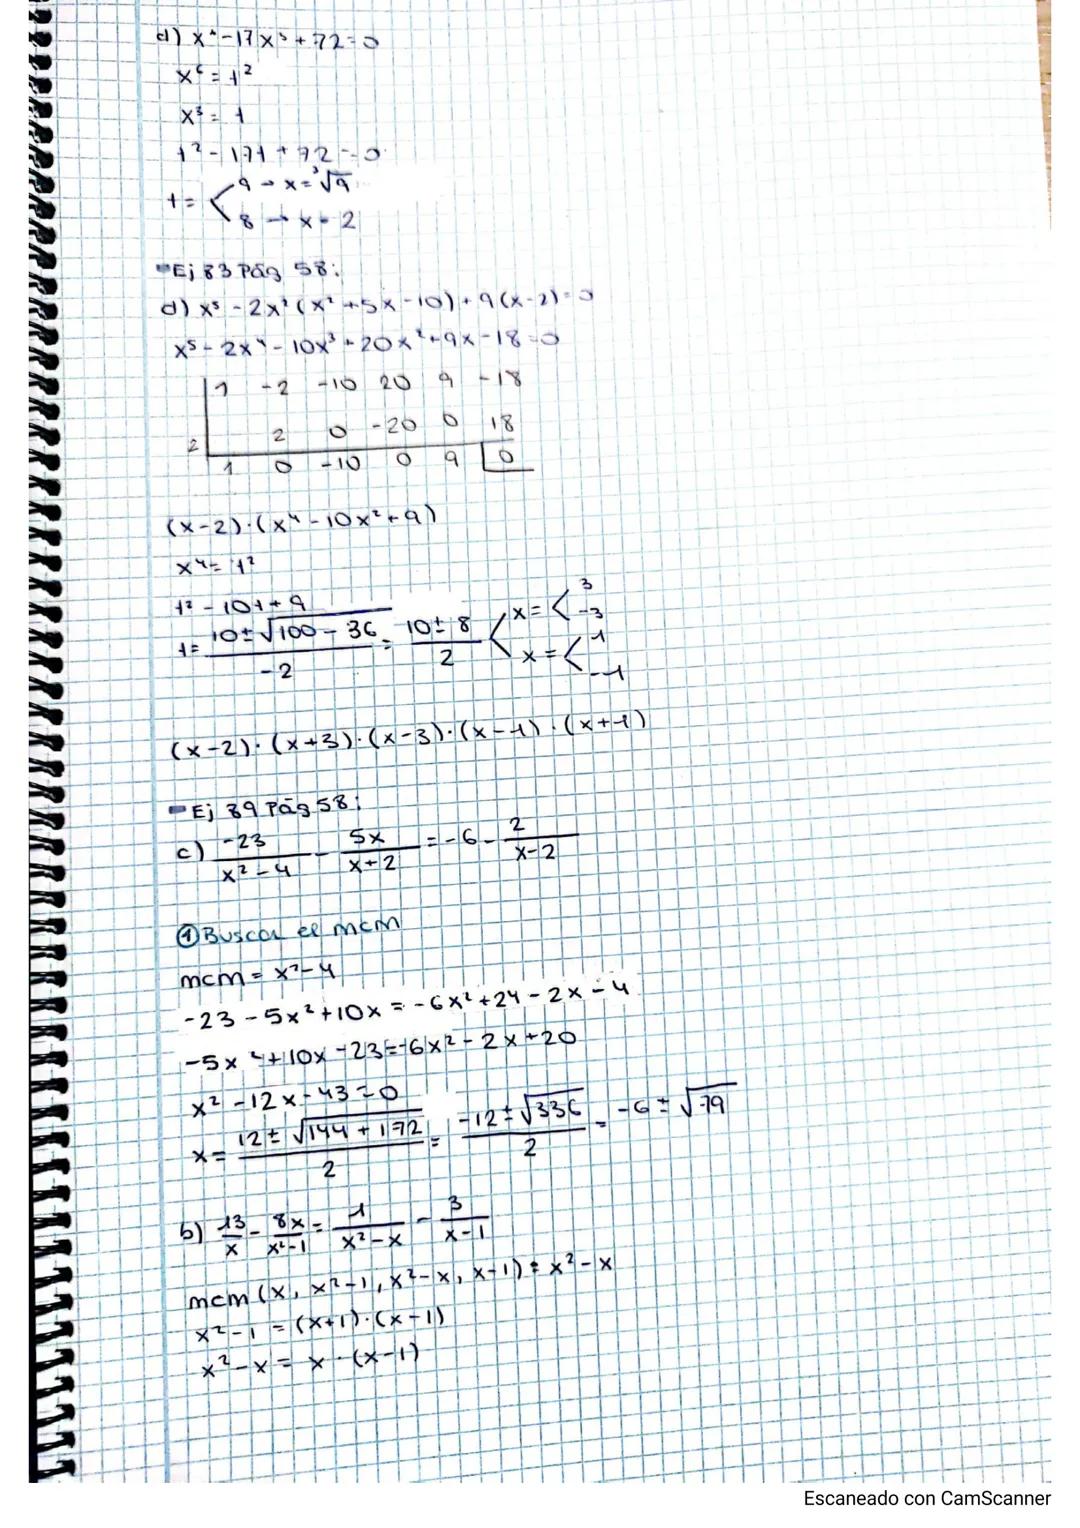 d) x⁶-17x³+72=0
x⁶=t²
x³=t
t²-17t+72=0
t= 9→x=³√9
8→x=2
Ej 83 Pág 58:
d) x⁵-2x²(x²+5x-10)+9(x-2)=0
x⁵-2x⁴-10x³+20x²+9x-18=0
1 -2 -10 20 9 -18
2 2 0 -20 0 18
1 0 -10 0 9 0
(x-2)·(x⁴-10x²+9)
x⁴=t²
t²-10t+9
t= (10±√100-36)/-2 = (10±8)/2 < x=< 3 -3
x=< 1 -1
(x-2)·(x+3)·(x-3)·(x-1)·(x+1)
Ej 89 Pág 58:
c) -23/(x²-4) - 5x/(x+2) = -6 - 2/(x-2)
① Buscar el mcm
mcm = x²-4
-23-5x²+10x=-6x²+24-2x-4
-5x²+10x-23=-6x²-2x+20
x²-12x-43=0
x= (12±√144+172)/2 = (-12±√336)/2 = -6±√79
b) 13/x - 8x/(x²-1) = 1/(x²-x) - 3/(x-1)
mcm (x, x²-1, x²-x, x-1) = x²-x
x²-1 = (x+1)·(x-1)
x²-x = x·(x-1)
Escaneado con CamScanner